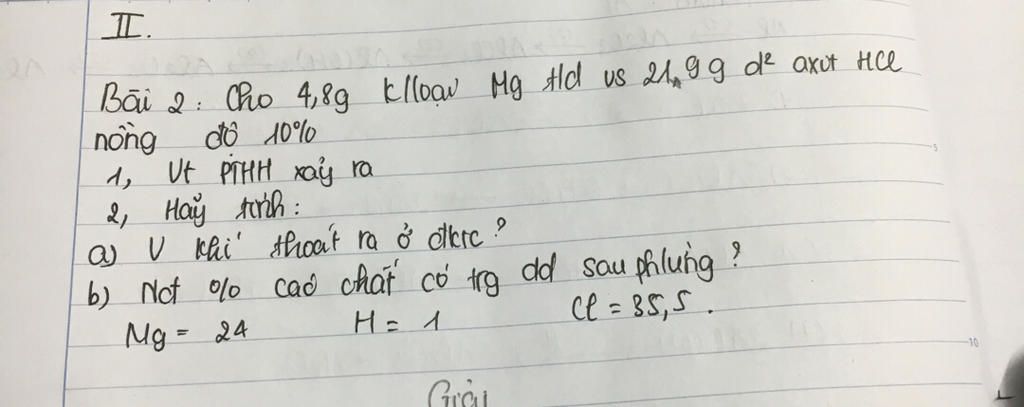 II.
Bài 2: Cho 4,8g klloại Mg t/d vs 21,9g d² axit HCl
nồng độ 10%
1, Vt PTHH xảy ra
2, Hãy tính:
a) V khí thoát ra ở đktc?
b) Nđ % các chất có trg dd sau phlưng?
Mg = 24 H = 1 Cl = 35,5.
Giải